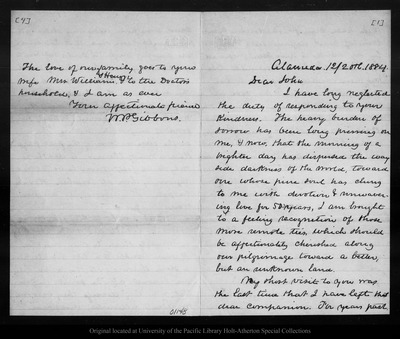 [4]
The love of our family goes to your
wife Mrs Williams, & Henry & to the Doctor's
household, & I am as ever
Your affectionate friend
W P Gibbons.
[1]
Alameda. 12/20th. 1884.
Dear John
I have long neglected
the duty of responding to your
kindness. The heavy burden of
sorrow has been long pressing on
me, & now, that the morning of a
brighter day has dispersed the way
side darkness of the world, toward
one whose pure soul has clung
to me with devotion, & unwaver-
ing love for years, I am brought
to a feeling recognition of those
more remote ties which should
be affectionately cherished along
our pilgrimage toward a better,
but an unknown land.
My short visit to you was
the last time that I have left that
dear companion. For years past
01145
Original located at University of the Pacific Library Holt-Atherton Special Collections